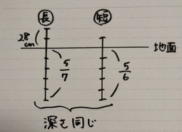 長 短
28cm
地面
5/7 5/6
深さ同じ